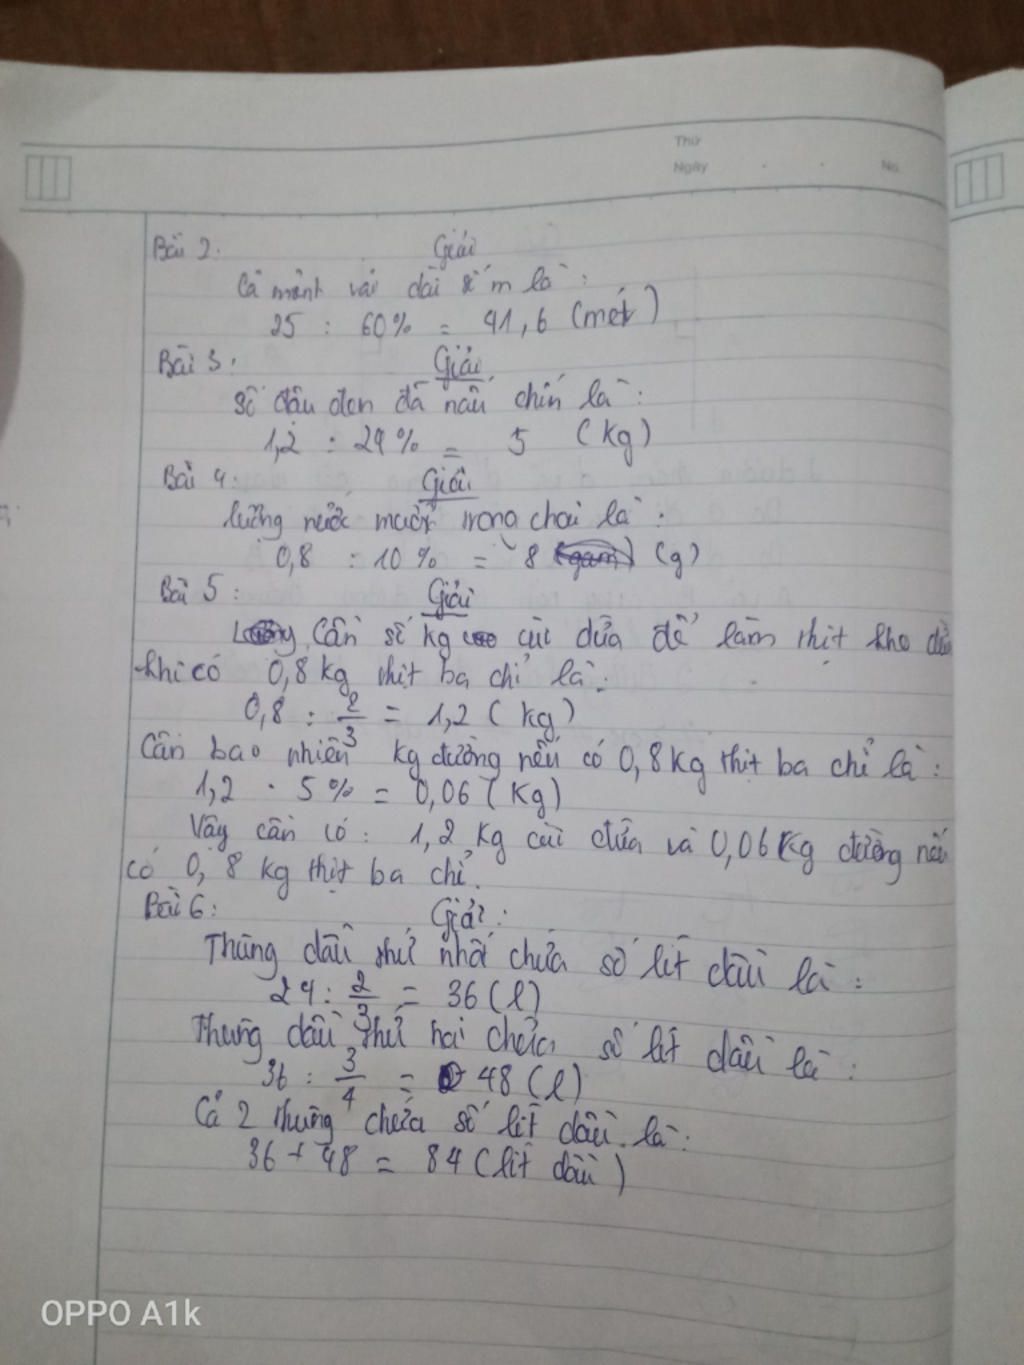 Thứ
Ngày No.
Bài 2: Giải
Cả mảnh vải dài số m là:
25 : 60% = 41,6 (mét)
Bài 3: Giải
Số đậu đen đã nấu chín là:
1,2 : 24% = 5 (kg)
Bài 4: Giải
Lượng nước muối trong chai là:
0,8 : 10% = 8 (g)
Bài 5: Giải
Cần số kg cùi dừa để làm thịt kho dừa
khi có 0,8 kg thịt ba chỉ là:
0,8 : 2/3 = 1,2 (kg)
Cần bao nhiên kg đường nếu có 0,8 kg thịt ba chỉ là:
1,2 . 5% = 0,06 (kg)
Vậy cần có: 1,2 kg cùi dừa và 0,06 kg đường nếu
có 0,8 kg thịt ba chỉ.
Bài 6: Giải:
Thùng dầu thứ nhất chứa số lít dầu là:
24 : 2/3 = 36 (l)
Thùng dầu thứ hai chứa số lít dầu là:
36 : 3/4 = 48 (l)
Cả 2 thùng chứa số lít dầu là:
36 + 48 = 84 (lít dầu)
OPPO A1k